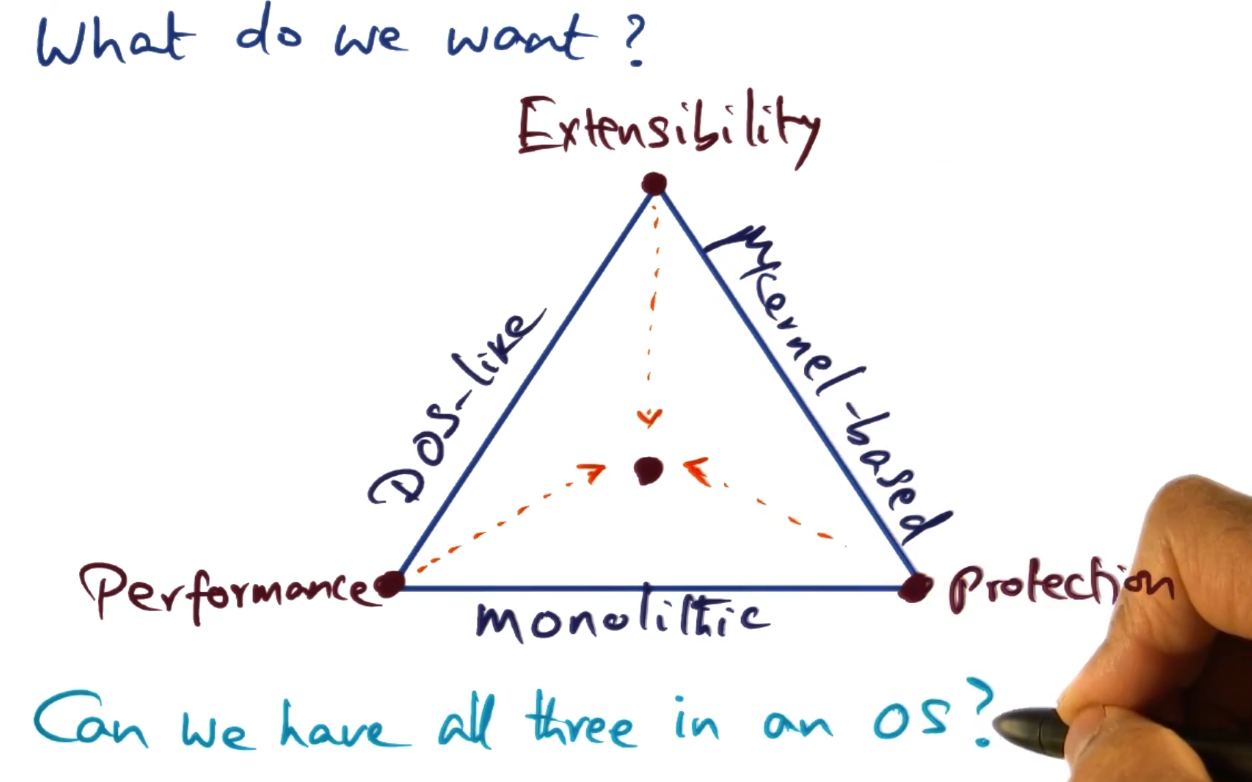 What do we want?
Extensibility
DOS-like
μkernel-based
Performance
Protection
monolithic
Can we have all three in an OS?